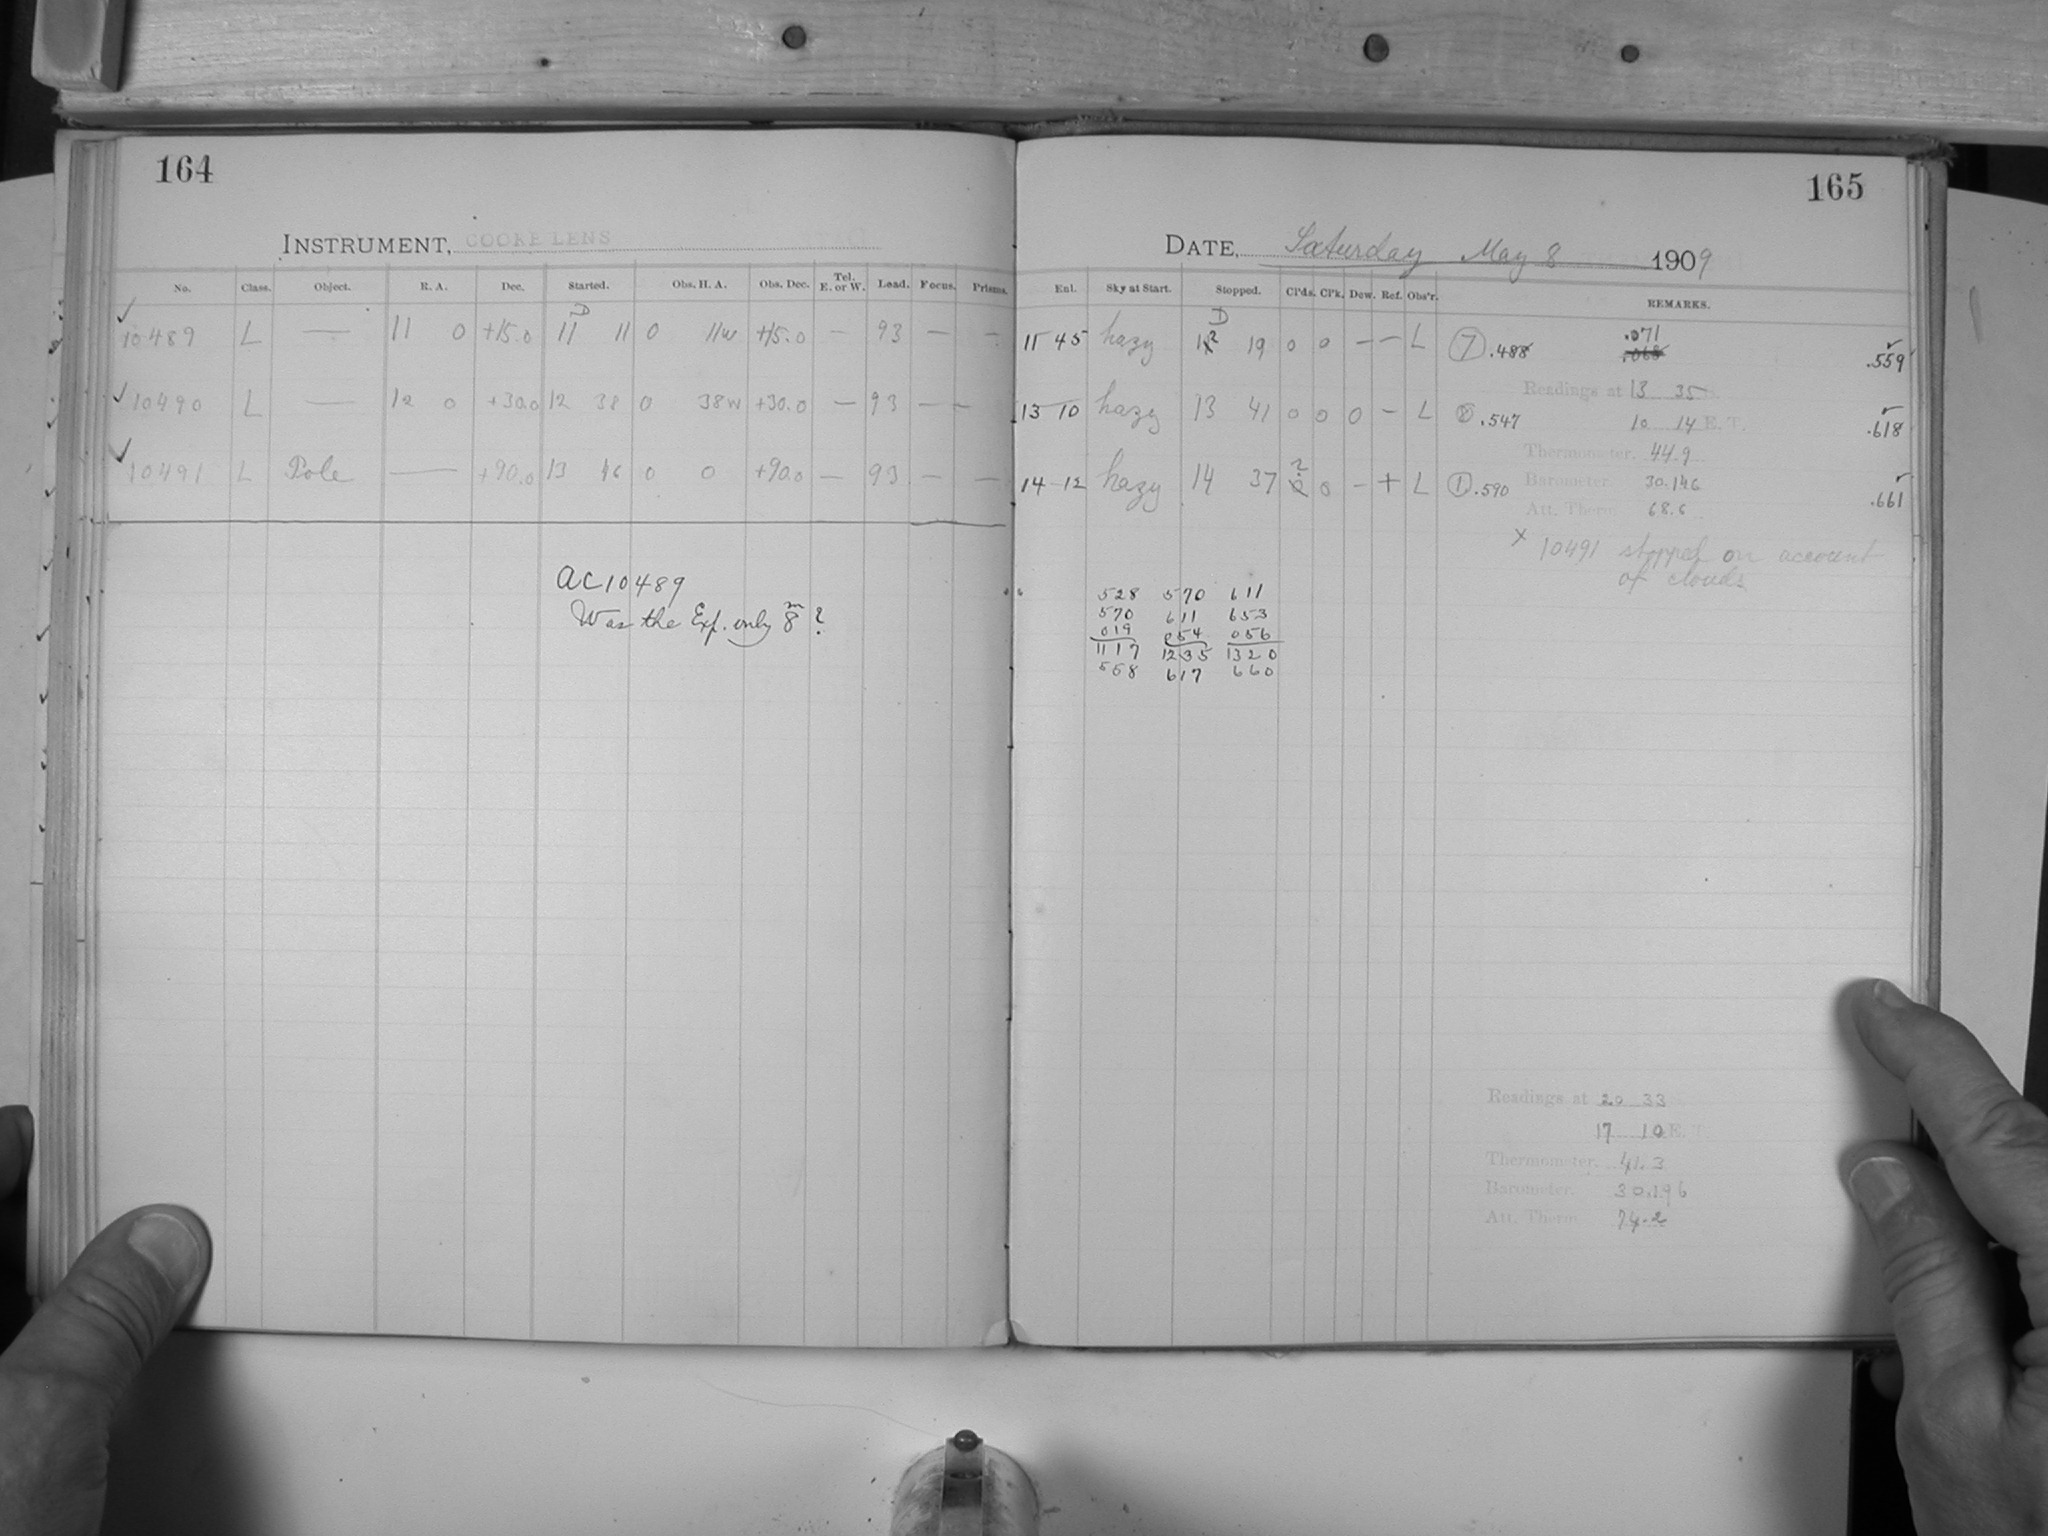 164
INSTRUMENT, COOKE LENS
No. Class. Object. R. A. Dec. Started. Obs. H. A. Obs. Dec. Tel. E. or W. Load. Focus. Prisms.
10489 L — 11 0 +15.0 11 11 0 11w +15.0 — 93 — —
10490 L — 12 0 +30.0 12 38 0 38w +30.0 — 93 — —
10491 L Pole — +90.0 13 46 0 0 +90.0 — 93 — —
AC10489
Was the Exp. only 8m?
165
DATE, Saturday May 8 1909
Enl. Sky at Start. Stopped. Cl'ds. Cl'k. Dew. Ref. Obs'r. REMARKS.
D
11 45 hazy 12 19 0 0 — — L 7 .488 .071 .068 .559
Readings at 13 35
13 10 hazy 13 41 0 0 0 — L .547 10 14 E. T. .618
Thermometer. 44.9
14 12 hazy 14 37 ? 0 — + L 1 .590 Barometer. 30.146 .661
Att. Therm. 68.6
x 10491 stopped on account
of clouds
528 570 611
570 611 653
019 054 056
1117 1235 1320
558 617 660
Readings at 20 33
17 10 E. T.
Thermometer. 41.3
Barometer. 30.196
Att. Therm. 74.2